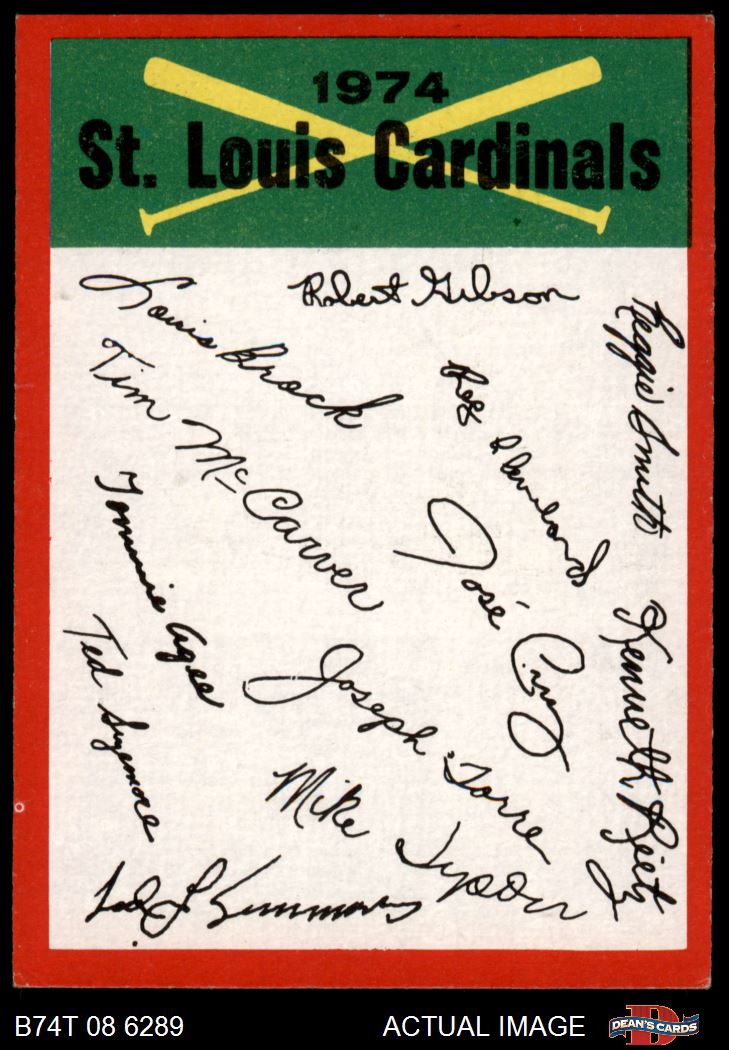 1974
St. Louis Cardinals
Robert Gibson
Louis Brock
Reggie Smith
Tim McCarver
Reg Cleveland
José Cruz
Tommie Agee
Kenneth Reitz
Ted Sizemore
Joseph Torre
Mike Tyson
Ted L Simmons
B74T 08 6289
ACTUAL IMAGE
D
DEAN'S CARDS